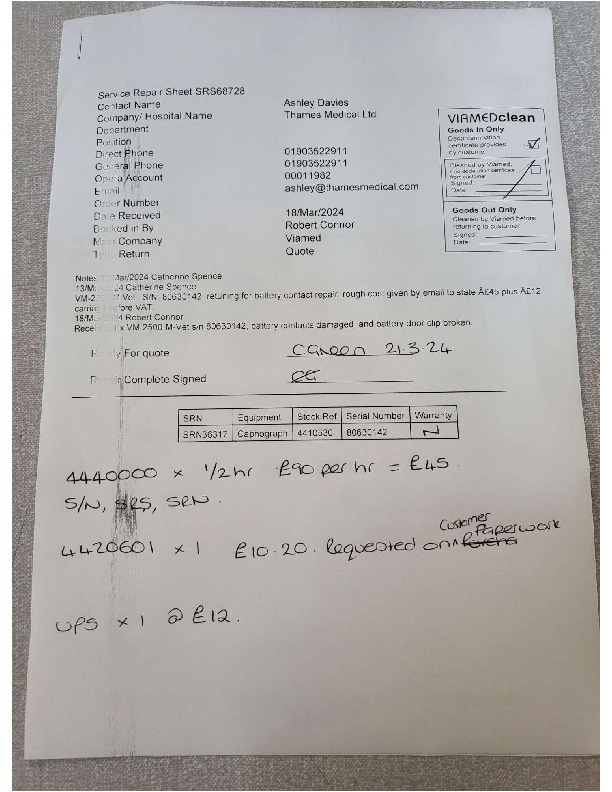 Service Repair Sheet SRS68728
Contact Name Ashley Davies
Company/ Hospital Name Thames Medical Ltd
Department
Position
Direct Phone 01903522911
General Phone 01903522911
Opera Account 00011982
Email ashley@thamesmedical.com
Order Number
Date Received 18/Mar/2024
Booked in By Robert Connor
Main Company Viamed
Type Return Quote
VIAMEDclean
Goods In Only
Decontamination
certificate provided
by customer
Cleaned by Viamed,
from customer
Signed:
Date:
Goods Out Only
Cleaned by Viamed before
returning to customer
Signed:
Date:
Notes: Mar/2024 Catherine Spence
13/M 24 Catherine Spence
VM-2 M Vet S/N: 80630142 returning for battery contact repair, rough cost given by email to state Â£45 plus Â£12
carriage before VAT
18/M 4 Robert Connor
Rece 1 x VM 2500 M-Vet s/n 80630142, battery contacts damaged and battery door clip broken.
Ready For quote C.Green 21.3.24
Repair Complete Signed CG
SRN Equipment Stock Ref Serial Number Warranty
SRN36317 Capnograph 4410530 80630142 N
4440000 x 1/2 hr £90 per hr = £45.
S/N, SRS, SRN.
4420601 x 1 £10.20. Requested on Customer Paperwork
UPS x 1 @ £12.